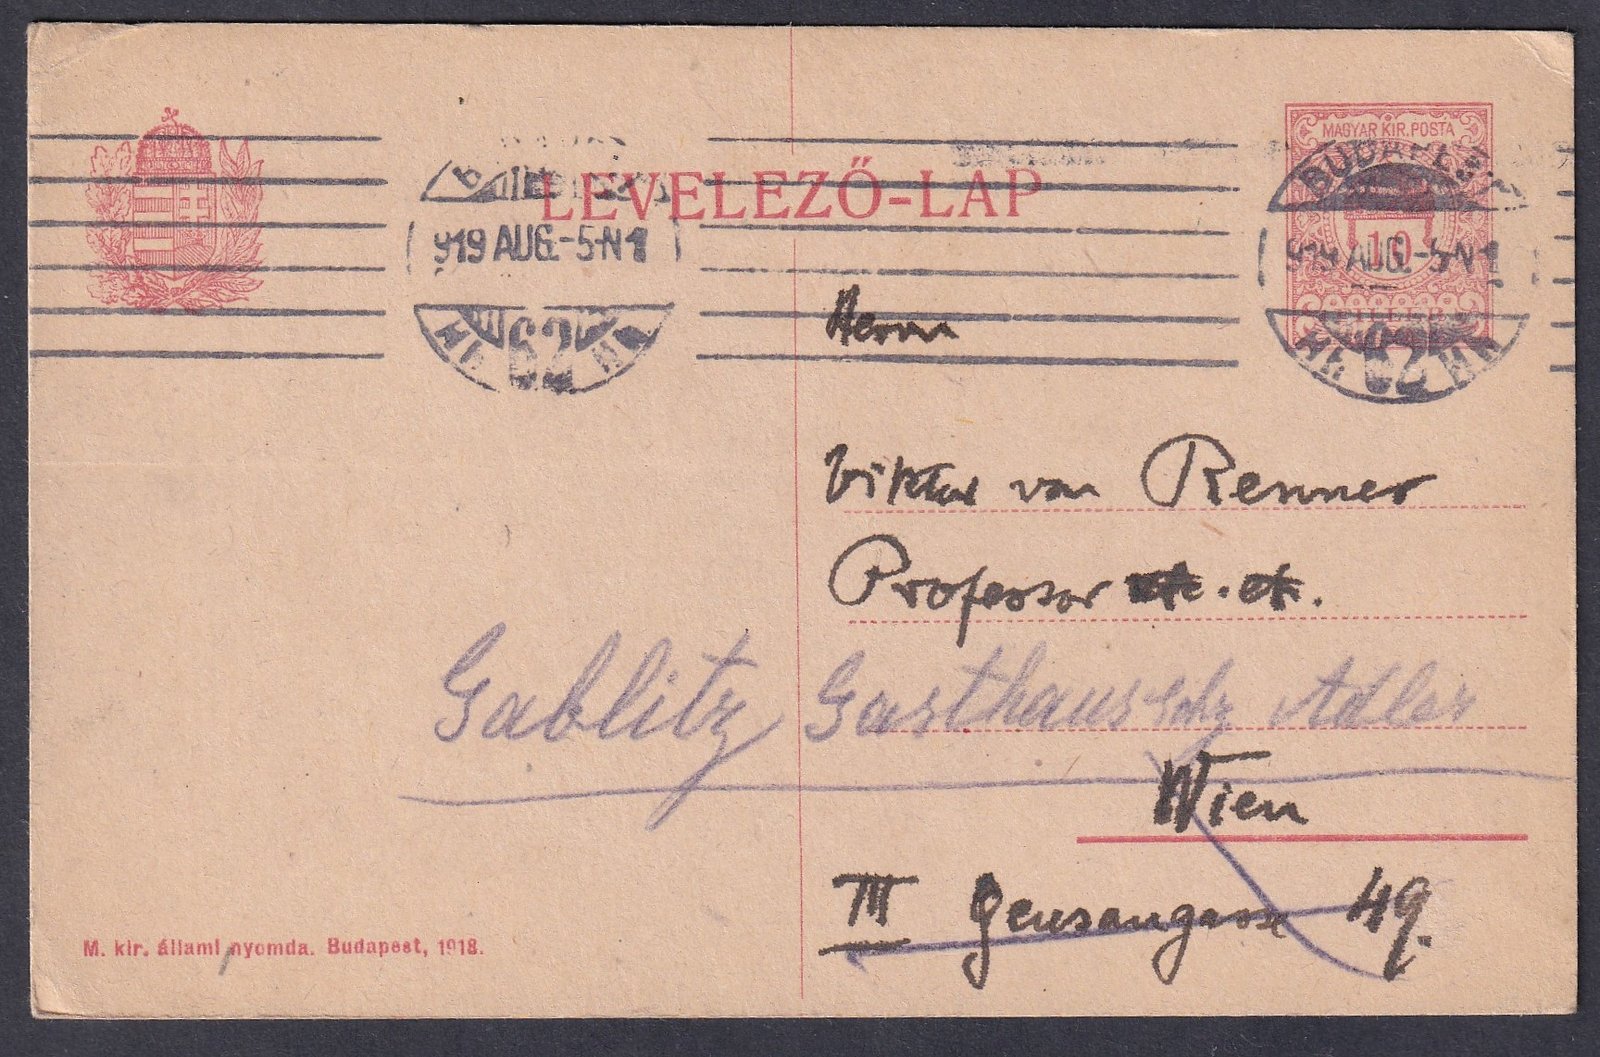 LEVELEZŐ-LAP
MAGYAR KIR. POSTA
10
FILLÉR
BUDAPEST
919 AUG.-5-N1
62
919 AUG.-5-N1
62
Herrn
Viktor von Renner
Professor etc. etc.
Gablitz Gasthaus schz Adler
Wien
III Geusaugasse 49.
M. kir. állami nyomda. Budapest, 1918.